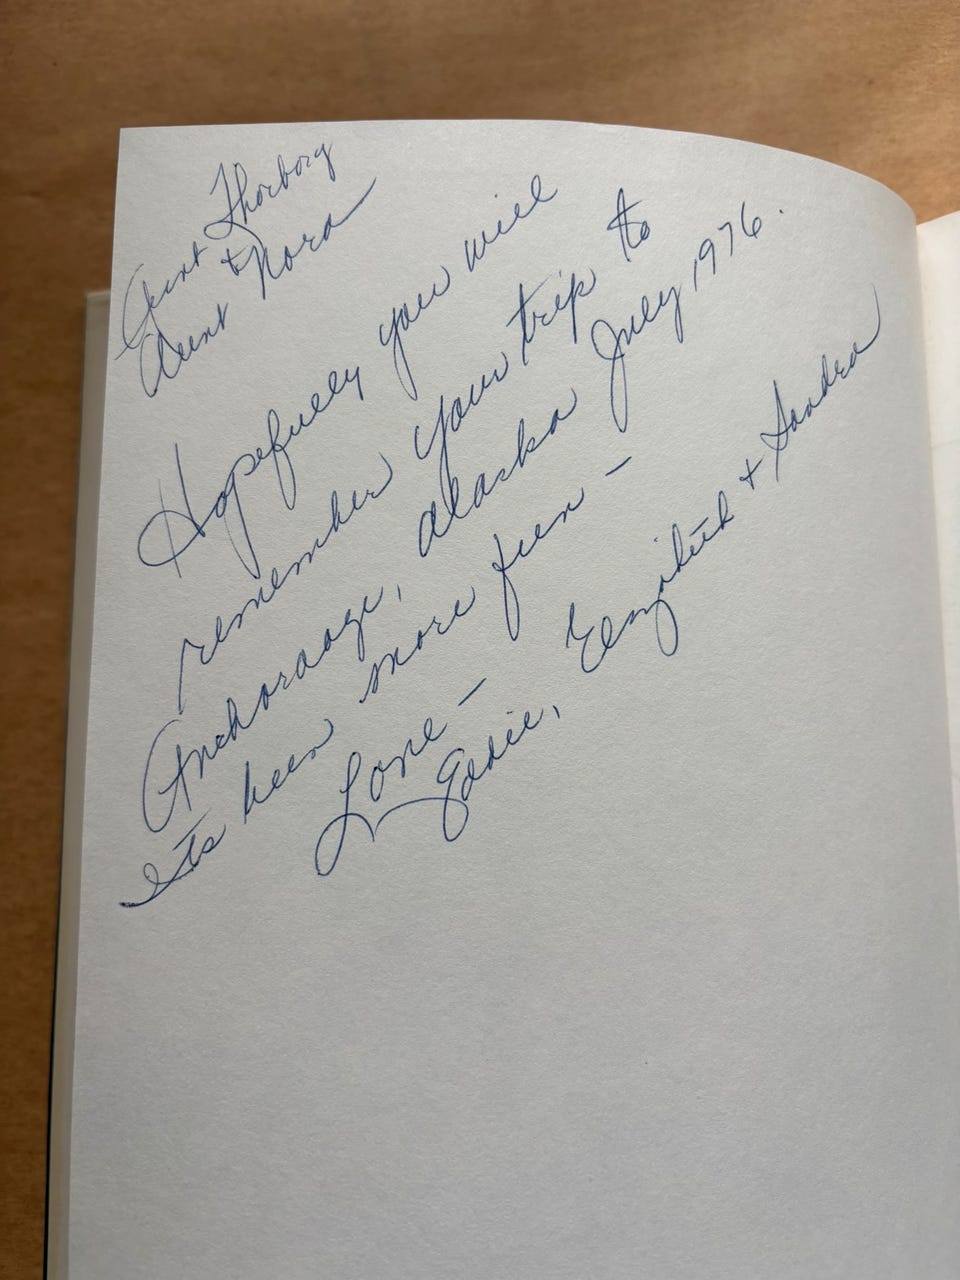 Aunt Thorborg
& Aunt Nora
Hopefully you will
remember your trip to
Anchoraage, Alaska July 1976.
Its been more fun –
Love –
Eddie, Elizabeth + Sandra